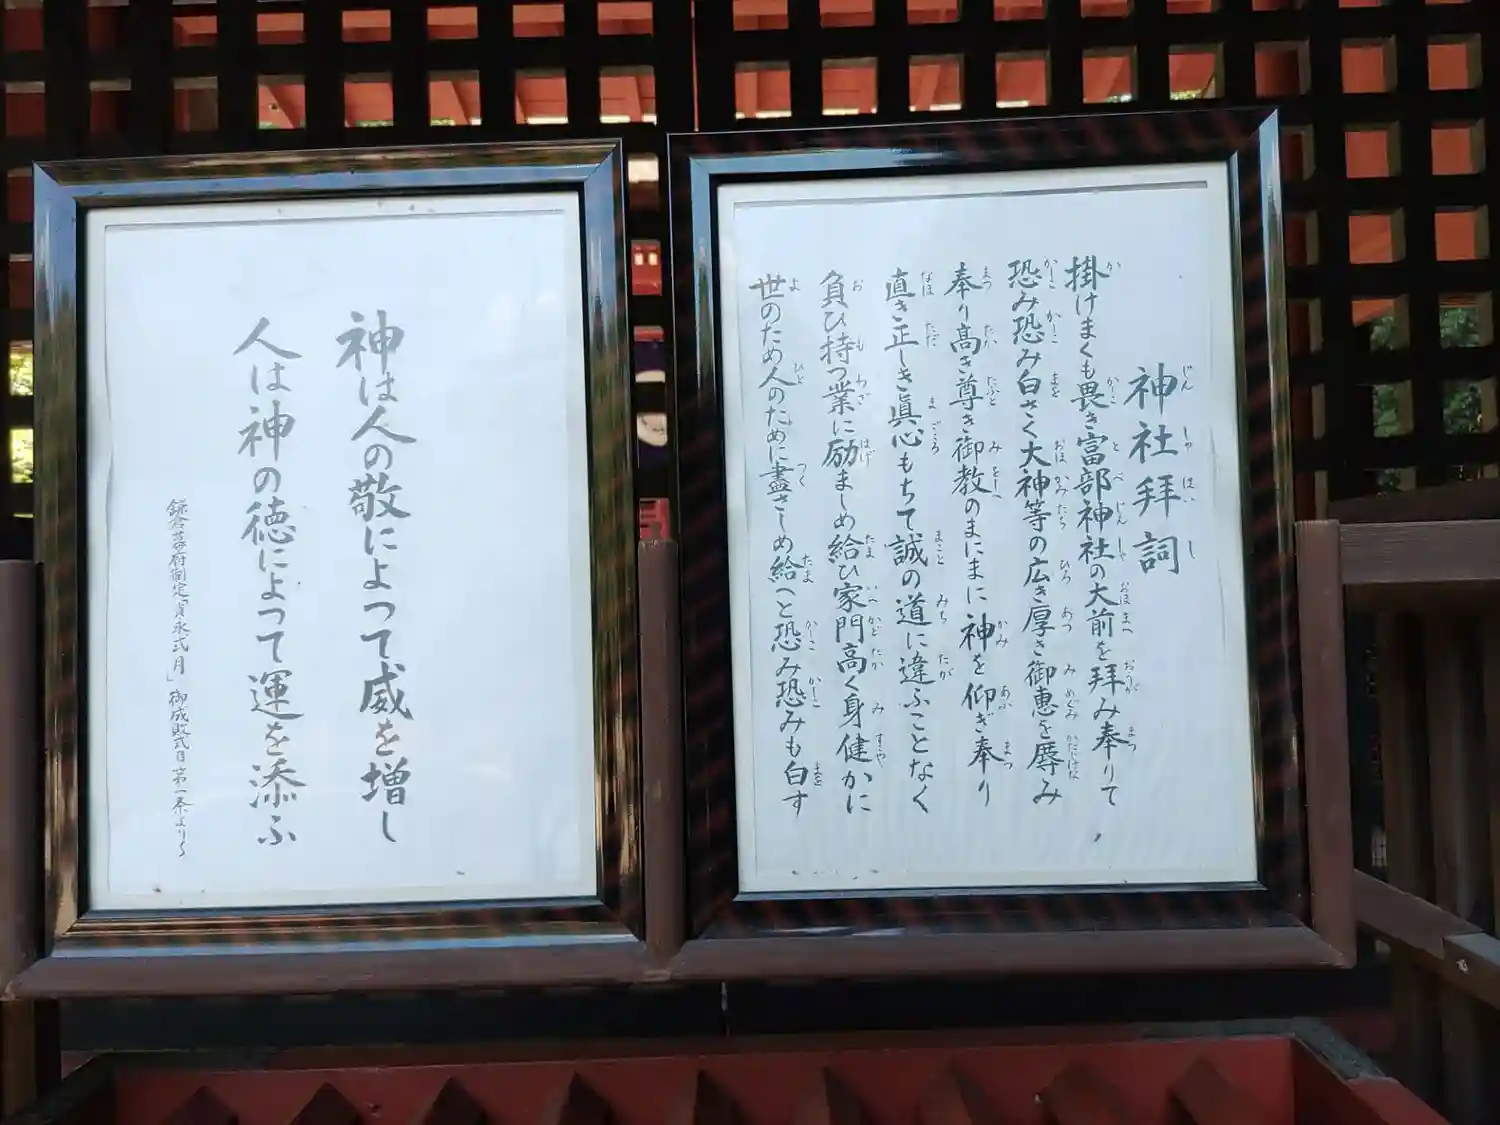 神社拝詞
掛けまくも畏き富部神社の大前を拝み奉りて
恐み恐み白さく大神等の広き厚き御恵を辱み
奉り高き尊き御教のまにまに神を仰ぎ奉り
直き正しき眞心もちて誠の道に違ふことなく
負ひ持つ業に励ましめ給ひ家門高く身健かに
世のため人のために盡さしめ給へと恐み恐みも白す
神は人の敬によって威を増し
人は神の徳によって運を添ふ
鎌倉幕府制定「貞永式目」御成敗式目第一条より